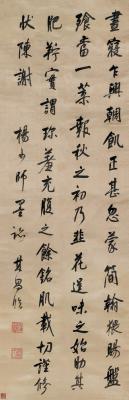 晝寢乍興朝飢正甚忽蒙簡翰猥賜盤
飧當一葉報秋之初乃韭花逞味之始助其
肥羜實謂珍羞充腹之餘銘肌載切謹修
狀陳謝 楊少師墨跡 其昌臨